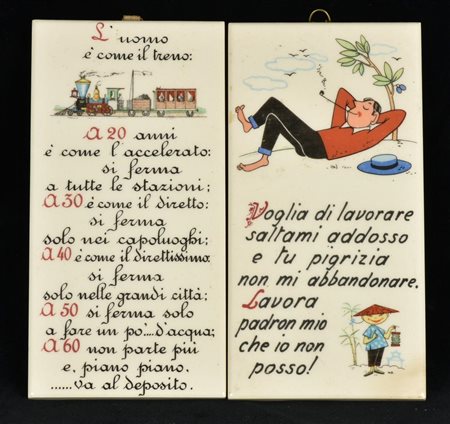 L'uomo
è come il treno:
A 20 anni
è come l'accelerato:
si ferma
a tutte le stazioni;
A 30 è come il diretto:
si ferma
solo nei capoluoghi;
A 40 è come il direttissimo
si ferma
solo nelle grandi città;
A 50 si ferma solo
a fare un po'....d'acqua;
A 60 non parte più
e, piano piano,
......va al deposito.
Voglia di lavorare
saltami addosso
e tu pigrizia
non mi abbandonare.
Lavora
padron mio
che io non
posso!